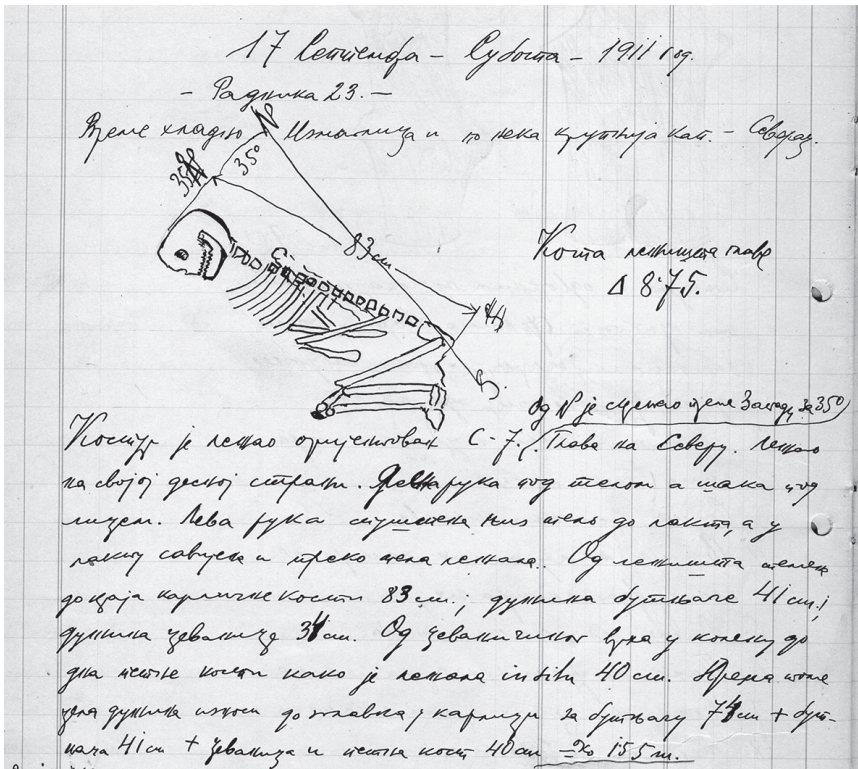 17 Септембра – Субота – 1911 год.
– Радника 23. –
Време хладно Измаглица и по нека крупнија кап. – Северац.
N
35°
83 cm
С
Кота лежишта главе
Δ 8·75.
Од N је слеme Западу за 35°
Костур је лежао оријентован С-Ј. Глава на Северу. Лежао
на својој десној страни. Десна рука под телом а шака под
лицем. Лева рука спуштена низ тело до лакта, а у
лакту савијена и преко тела лежала. Од лежишта темена
до краја карличне кости 83 cm.; дужина бутњаче 41 cm.;
дужина цеванице 34 cm. Од цеваничног врха у колену до
дна петне кости како је лежала in situ 40 cm. Према томе
цела дужина износи до зглавка у карлици за бутњачу 74 cm + бут-
њача 41 cm + цеваница и петна кост 40 cm = 155 m.